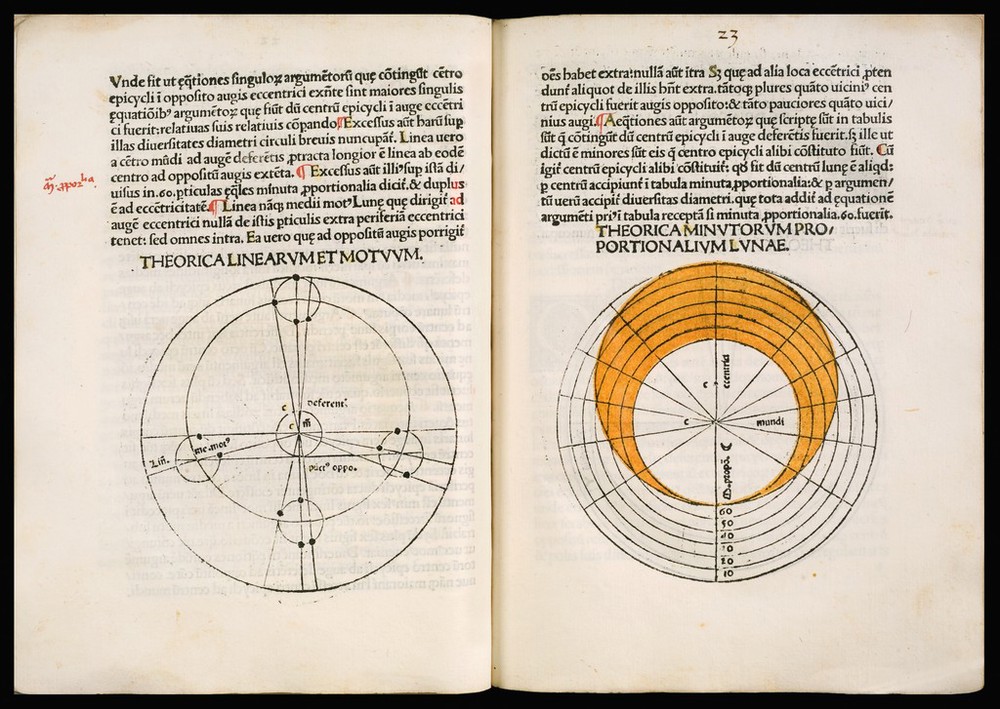 Vnde fit ut eq̃tiones singuloꝝ argumẽtorũ quę cõtingũt cẽtro
epicycli ĩ opposito augis eccentrici exñte sint maiores singulis
ęquatiõibꝰ argumẽtoꝝ quę fiũt dũ centrũ epicycli ĩ auge eccẽtri
ci fuerit: relatiuas suis relatiuis cõpando ¶ Excessus aũt harũ sup
illas diuersitates diametri circuli breuis nuncupãt̃. Linea uero
a cẽtro mũdi ad augẽ deferẽtis ,ptracta longior ẽ linea ab eodẽ
centro ad oppositũ augis extẽta. ¶ Excessus aũt illiꝰ sup istã di/
uisus in.60.pticulas eq̃les minuta ,pportionalia dicit̃. & duplus
ẽ ad eccẽtricitatẽ. ¶ Linea nãq; medii motꝰ Lunę que dirigit̃ ad
augẽ eccentrici nullã de istis pticulis extra periferiã eccentrici
tenet: sed omnes intra. Ea uero quę ad oppositũ augis porrigit̃
THEORICA LINEARVM ET MOTVVM.
c
deferent̃
c
m̃
Liñ.
me.motꝰ
pũctꝰ oppo.
23
oẽs habet extra: nullã aũt ĩtra Sꝫ quę ad alia loca eccẽtrici ,pten
dunt̃ aliquot de illis hñt extra. tãtoq; plures quãto uicini⁹ cen
trũ epicycli fuerit augis opposito: & tãto pauciores quãto uici/
nius augi. ¶ Aeq̃tiones aũt argumẽtoꝝ quę scriptę sũt in tabulis
sũt q̃ cõtingũt dũ centrũ epicycli ĩ auge deferẽtis fuerit. sꝫ ille ut
dictũ ẽ minores sũt eis q̃ centro epicycli alibi cõstituto fiũt. Cũ
igit̃ centrũ epicycli alibi cõstituit̃: qđ fit dũ centrũ lunę ẽ aliqđ:
ꝑ centrũ accipiunt̃ ĩ tabula minuta ,pportionalia: & ꝑ argumen/
tũ uerũ accipit̃ diuersitas diametri. que tota addit̃ ad ęquationẽ
argumẽti pri⁹ ĩ tabula receptã si minuta ,pportionalia.60.fuerit.
THEORICA MINVTORVM PRO/
PORTIONALIVM LVNAE.
c eccentrici
c mundi
M.,propõ. ☾
60
50
40
30
20
10